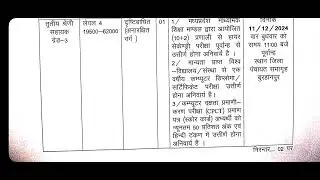 तृतीय श्रेणी
सहायक
ग्रेड-3
लेवल 4
19500-62000
दृष्टिबाधित
(अनारक्षित
वर्ग)
01
1/ मध्यप्रदेश माध्यमिक
शिक्षा मण्डल द्वारा आयोजित
(10+2) प्रणाली से हायर
सेकेण्ड्री परीक्षा पूर्वान्ह से
उत्तीर्ण होना अनिवार्य है ।
2/ मान्यता प्राप्त विश्व
-विद्यालय/संस्था से एक
वर्षीय कम्प्यूटर डिप्लोमा/
सर्टिफिकेट परीक्षा उत्तीर्ण
होना अनिवार्य है ।
3/कम्प्यूटर दक्षता प्रमाणी-
करण परीक्षा (CPCT) प्रमाण
पत्र (स्कोर कार्ड) अभ्यर्थी को
न्यूनतम 50 प्रतिशत अंक एवं
हिन्दी टंकण में उत्तीर्ण होना
अनिवार्य है ।
दिनांक
11/12/2024
वार बुधवार को
समय 11:00 बजे
पूर्वान्ह
स्थान जिला
पंचायत सभागृह
बुरहानपुर
निरन्तर.. 02 पर